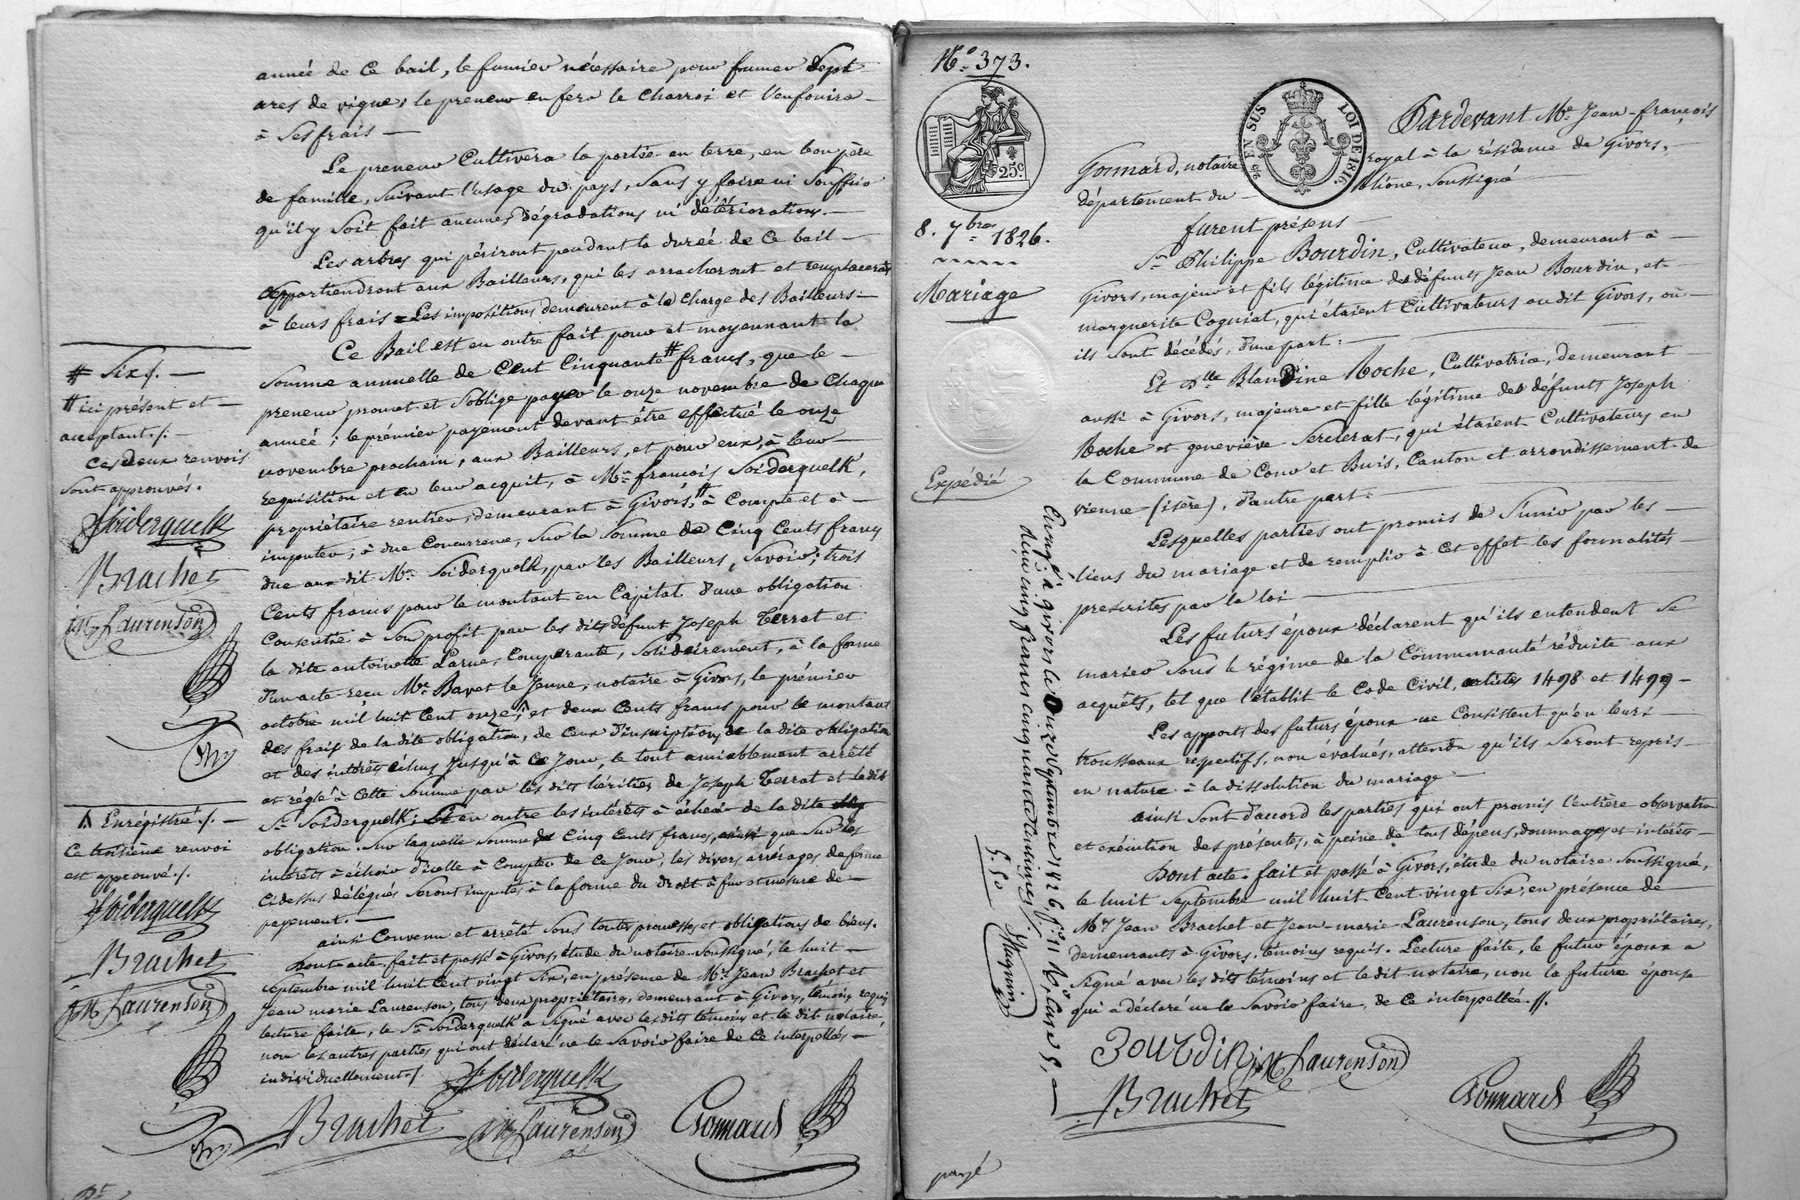 année de ce bail, le fumier nécessaire pour fumer Sept
ares de vigne; le preneur en fera le charroi et l'enfouira —
à Ses frais —
Le preneur Cultivera la partie en terre, en bon père
de famille, Suivant l'usage du pays, Sans y faire ni Souffrir
qu'il y Soit fait aucunes dégradations ni détériorations. —
Les arbres qui périront pendant la durée de ce bail —
appartiendront aux Bailleurs, qui les arracheront et remplaceront
à leurs frais = Les impositions demeurent à la charge des Bailleurs. —
Ce Bail est en outre fait pour et moyennant la
Somme annuelle de Cent Cinquante # francs, que le —
preneur promet et S'oblige payer le onze novembre de Chaque
année; le prémier payement devant être effectué le onze
novembre prochain, aux Bailleurs, et pour eux, à leur
requisition et en leur acquit, à Mr. françois Soiderquelk,
propriétaire rentier, demeurant à Givors, # à Compte et à —
imputer, à due Concurrence, Sur la Somme de Cinq Cents francs
due au dit Mr. Soiderquelk, par les Bailleurs, Savoir; trois
Cents francs pour le montant en Capital d'une obligation
Consentie à Son profit par les dits défunt Joseph Terrat et
la dite antoinette Larue, Comparante, Solidairement, à la forme
d'un acte reçu Me. Bavet le Jeune, notaire à Givors, le prémier
octobre mil huit Cent onze; et deux Cents francs pour le montant
des frais de la dite obligation, de Ceux d'inscription, de la dite obligation
et des intérêts échus Jusqu'à Ce Jour, le tout amiablement arrêté
et réglé à Cette Somme par les dits héritiers de Joseph Terrat et le dit
Sr. Soiderquelk; et en outre les intérêts à échoir de la dite
obligation. Sur laquelle Somme de Cinq Cents francs, ainsi que Sur les
intérêts à échoir d'icelle à Compter de Ce Jour, les divers arrérages de ferme
Cidessus délégués Seront imputés à la forme du droit à fur et mesure de —
payement. —
ainsi Convenu et arrêté Sous toutes promesses et obligations de biens.
Dont acte. fait et passé à Givors, étude du notaire Soussigné, le huit —
Septembre mil huit Cent vingt Six, en présence de Mrs. Jean Brachet et
Jean marie Laurenson, tous deux propriétaires, demeurant à Givors, témoins requis
lecture faite, le Sr. Soiderquelk a Signé avec les dits témoins et le dit notaire
non les autres parties qui ont déclaré ne le Savoir faire de Ce interpellés —
individuellement./.
Soiderquelk
Brachet JM Laurenson Gonnard
# Six /. —
# ici présent et —
acceptant./. —
Ces deux renvois
Sont approuvés.
Soiderquelk
Brachet
JM Laurenson
Δ Enrégistré /. —
Ce troisième renvoi
est approuvé./.
Soiderquelk
Brachet
JM Laurenson
No. 373.
25c
8. 7bre 1826.
Mariage
Expédié
Enregé. à givors le onze Septembre 1826 fo. 11 Ro. Case 5,
Reçu cinq francs cinquante centimes /.
5.50
EN SUS
LOI DE 1816.
Pardevant Me. Jean-françois
Gonnard, notaire royal à la résidence de Givors,
département du Rhône, Soussigné
furent présens —
Sr. Philippe Bourdin, Cultivateur, demeurant à —
Givors, majeur et fils légitime des défunts Jean Bourdin, et
marguerite Cogniat, qui étaient Cultivateurs au dit Givors, où —
ils Sont décédés, d'une part: —
Et Dlle Blandine Roche, Cultivatrice, demeurant —
aussi à Givors, majeure et fille légitime des défunts Joseph
Roche et geneviève Serclerat, qui étaient Cultivateurs en
la Commune de Cour et Buis, Canton et arrondissement de
vienne (isère), d'autre part: —
Lesquelles parties ont promis de S'unir par les —
liens du mariage et de remplir à Cet effet les formalités —
prescrites par la loi —
Les futurs époux déclarent qu'ils entendent Se
marier Sous le régime de la Communauté réduite aux
acquêts, tel que l'établit le Code Civil, articles 1498 et 1499 —
Les apports des futurs époux ne Consistent qu'en leurs —
trousseaux respectifs, non évalués, attendu qu'ils Seront repris —
en nature à la dissolution du mariage —
ainsi Sont d'accord les parties qui ont promis l'entière observation
et exécution des présentes, à peine de tous dépens, dommages et intérêts —
Dont acte. fait et passé à Givors, étude du notaire Soussigné,
le huit Septembre mil huit Cent vingt Six, en présence de —
Mrs Jean Brachet et Jean-marie Laurenson, tous deux propriétaires,
demeurants à Givors, témoins requis. Lecture faite, le futur époux a
Signé avec les dits témoins et le dit notaire, non la future épouse
qui a déclaré ne le Savoir faire, de Ce interpellée. //.
Bourdin JM Laurenson
Brachet Gonnard
payé